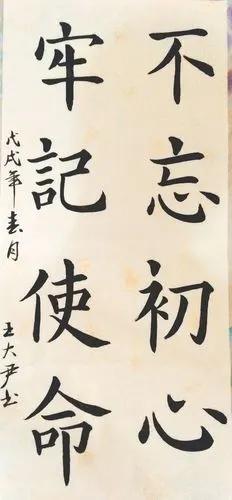 不忘初心
牢記使命
戊戌年春月
王大尹书